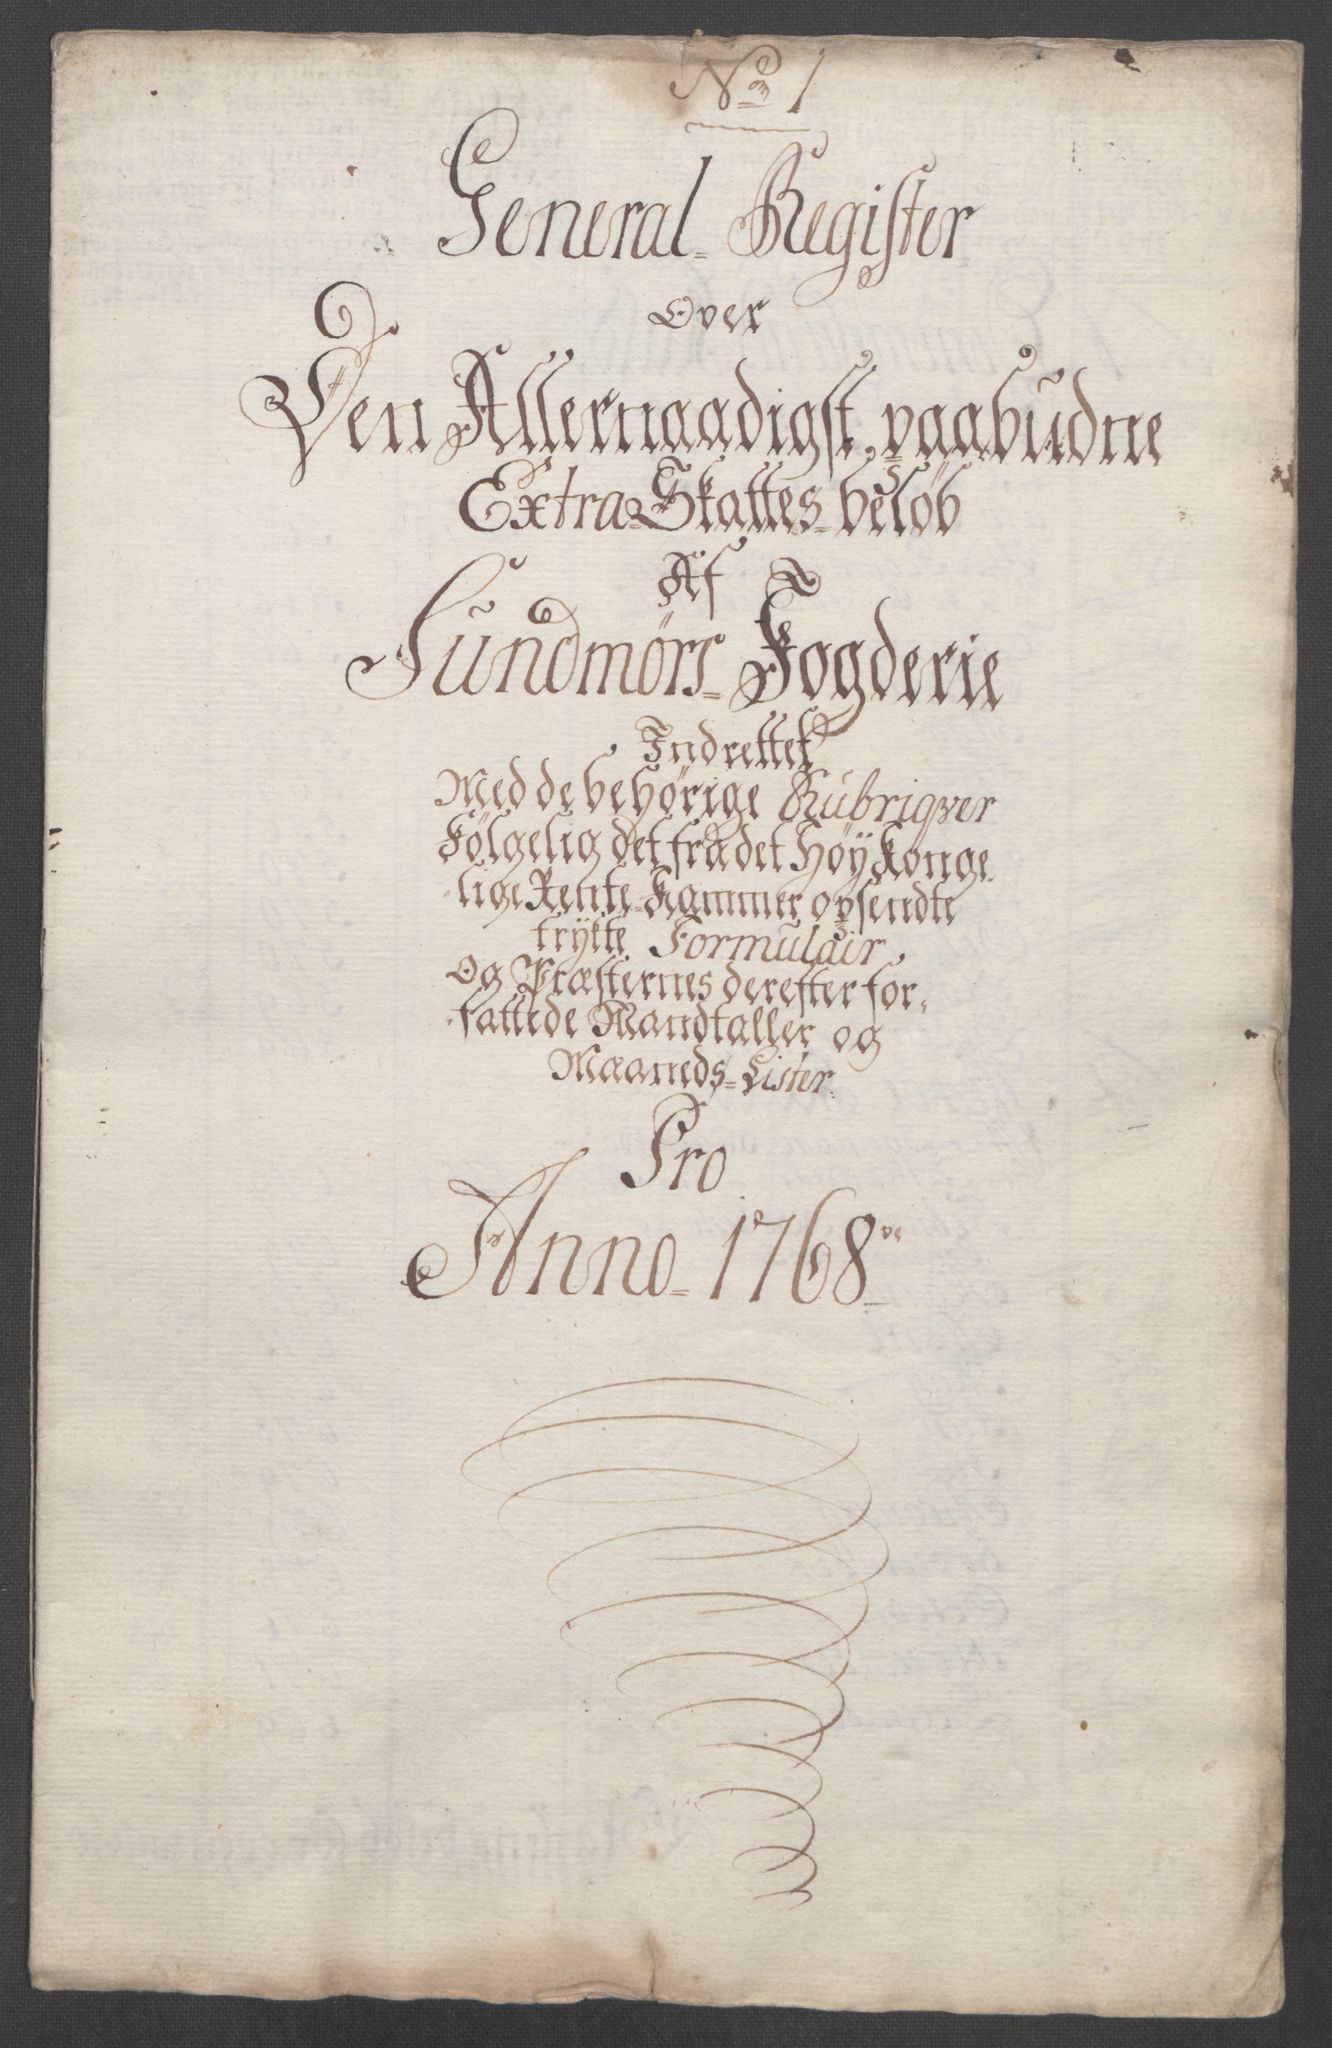 No 1
General Register
Over
Den Allernaadigst paabudne
Extra Skattes beløb
Af
Sundmørs Fogderie
Indrettet
Med de behørige Rubriqver
følgelig det fra det Høy Konge
lige Rente Kammer opsendte
trykte Formulair
Og Præsternes derefter for
fattede Mandtaller og
Maaneds Lister
Pro
Anno 1768